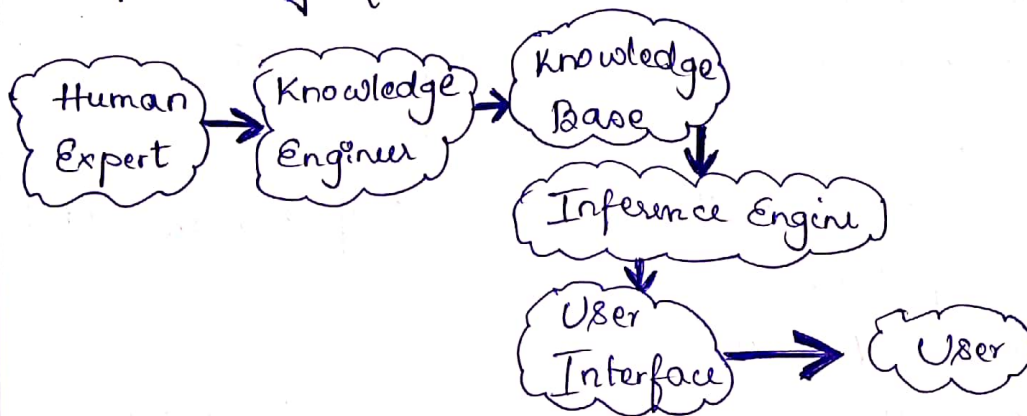 Human
Expert
Knowledge
Engineer
Knowledge
Base
Inference Engine
User
Interface
User